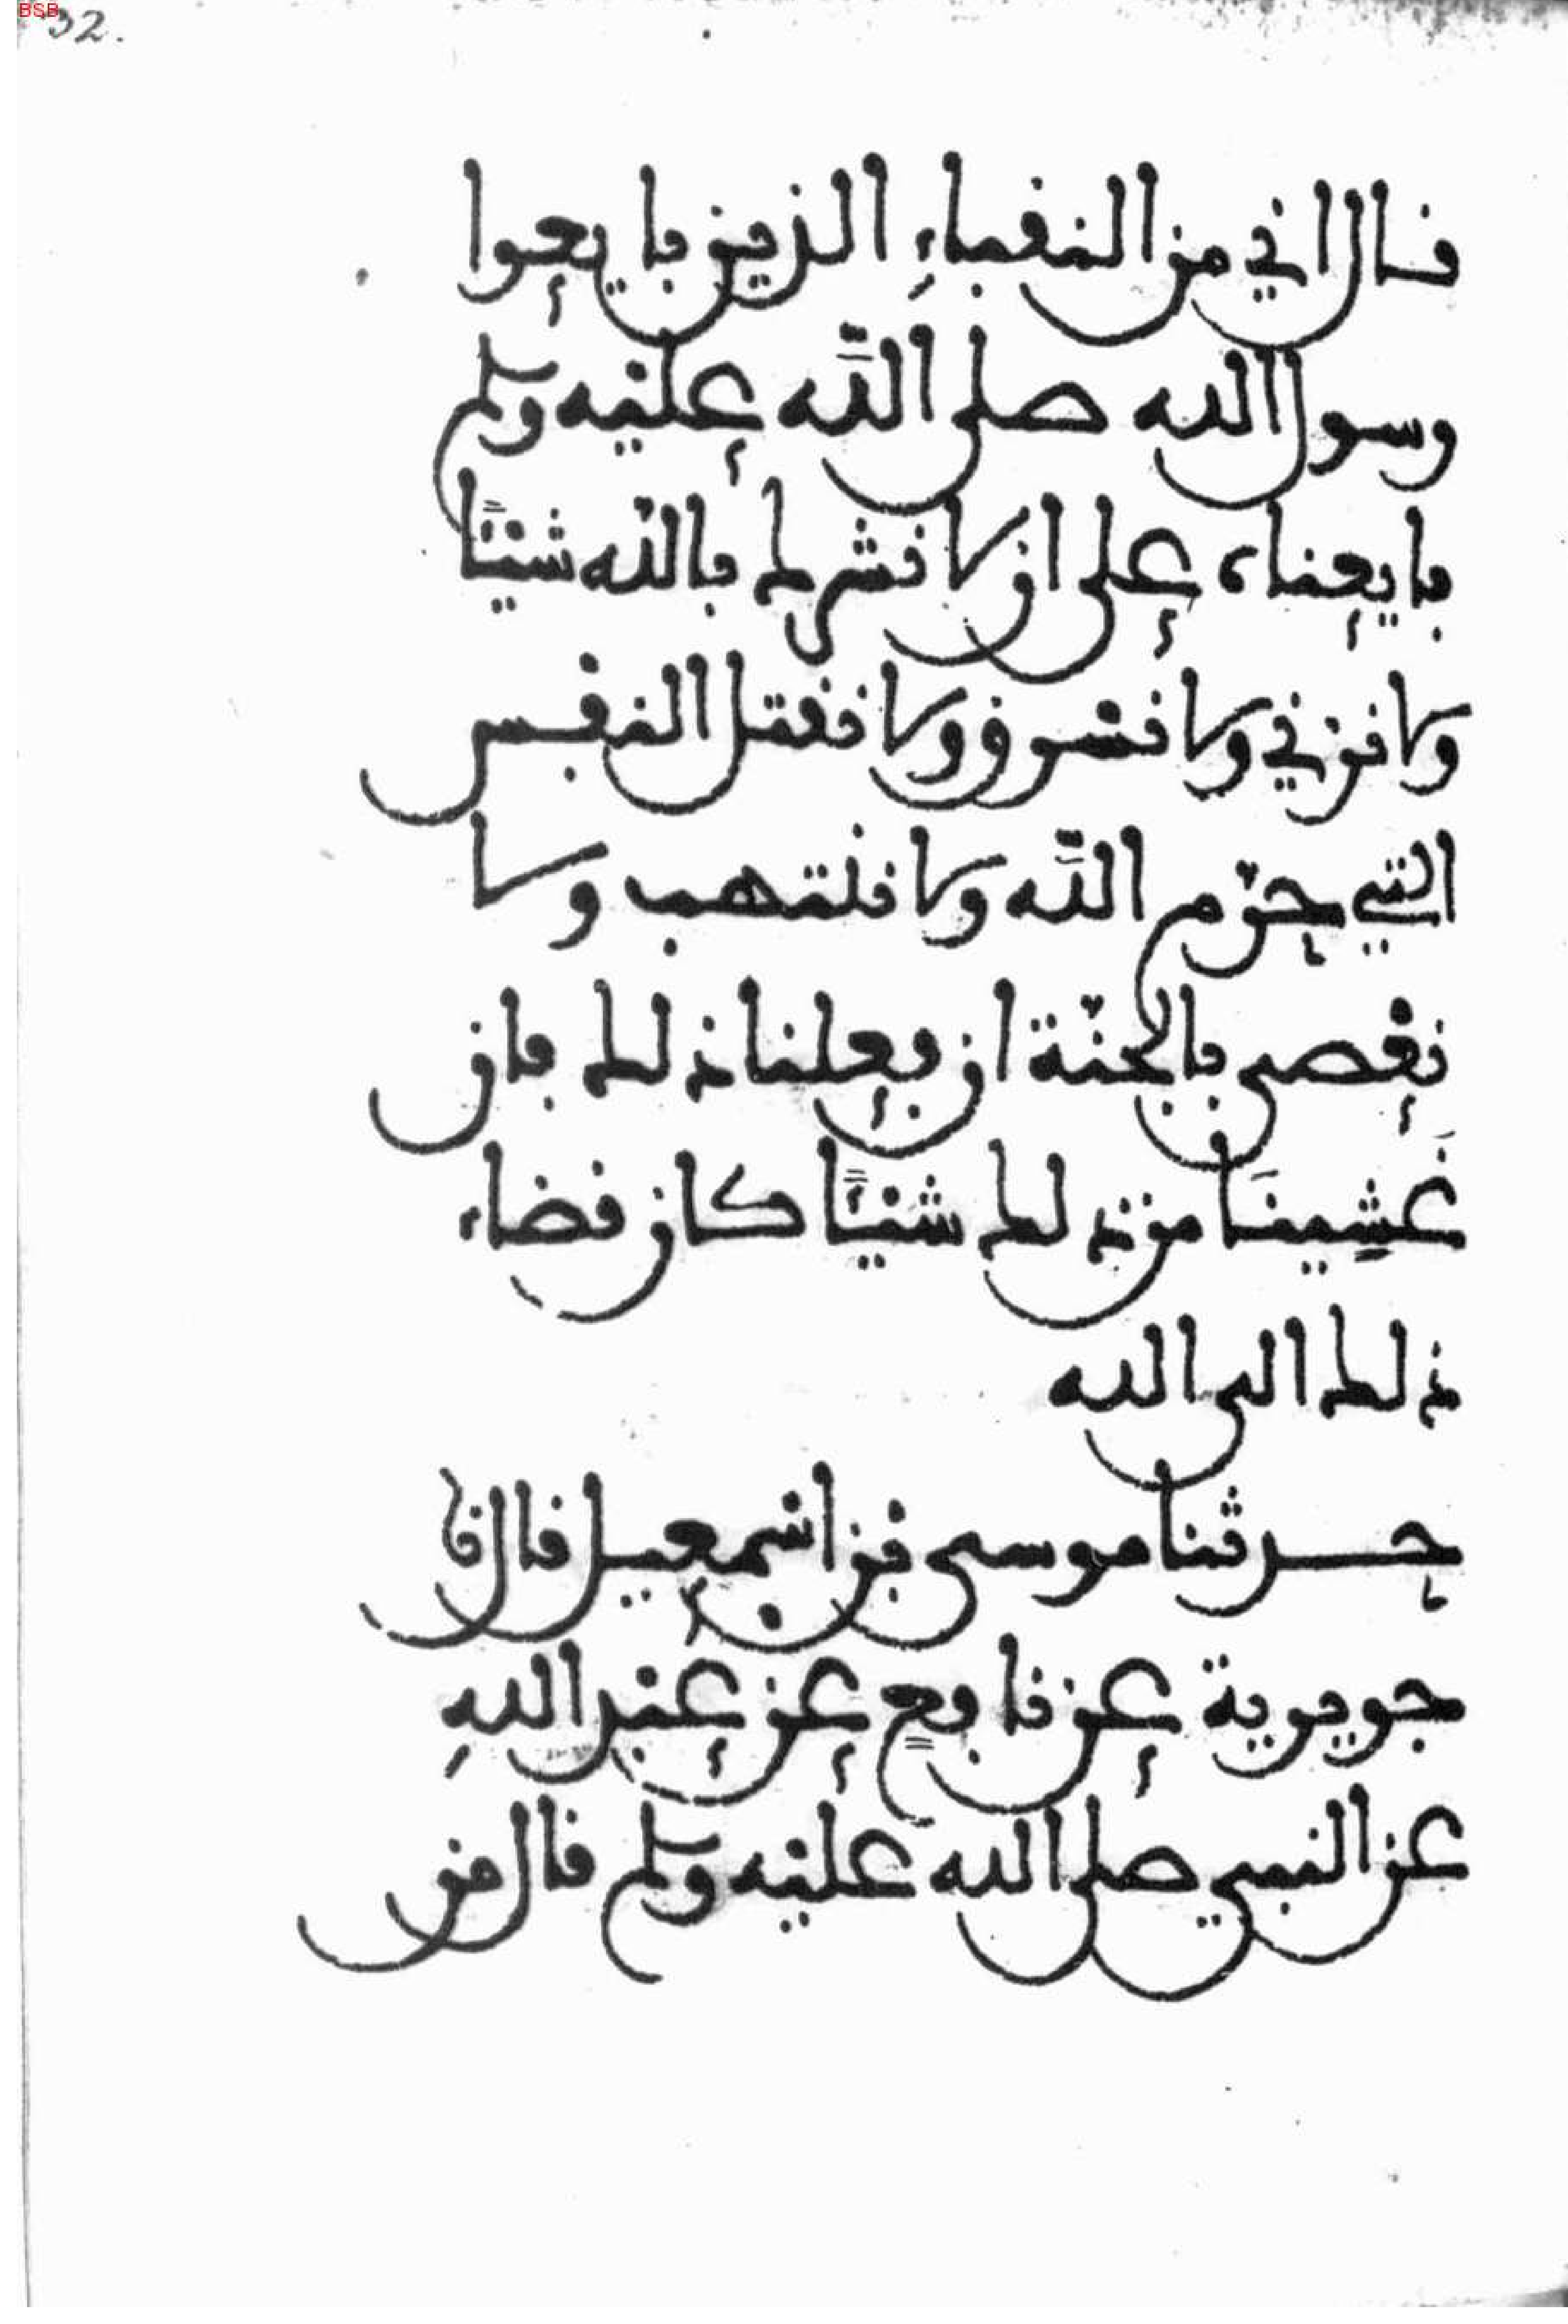 32.
قال اني من النقباءِ الذين بايعوا
رسول الله صلى اللّه عليه وسلم
بايعناه على ان لا نشرك باللّه شيئًا
ولا نزني ولا نسرق ولا نقتل النفس
التي حرّم اللّه ولا ننتهب ولا
نعصي بالجنّة ان فعلنا ذلك فان
غَشِينَا من ذلك شيئًا كان قضاء
ذلك الى الله
حدثنا موسى بن اسمعيل قال نا
جويرية عن نافعٍ عن عبد اللهِ
عن النبي صلى الله عليه وسلم قال من